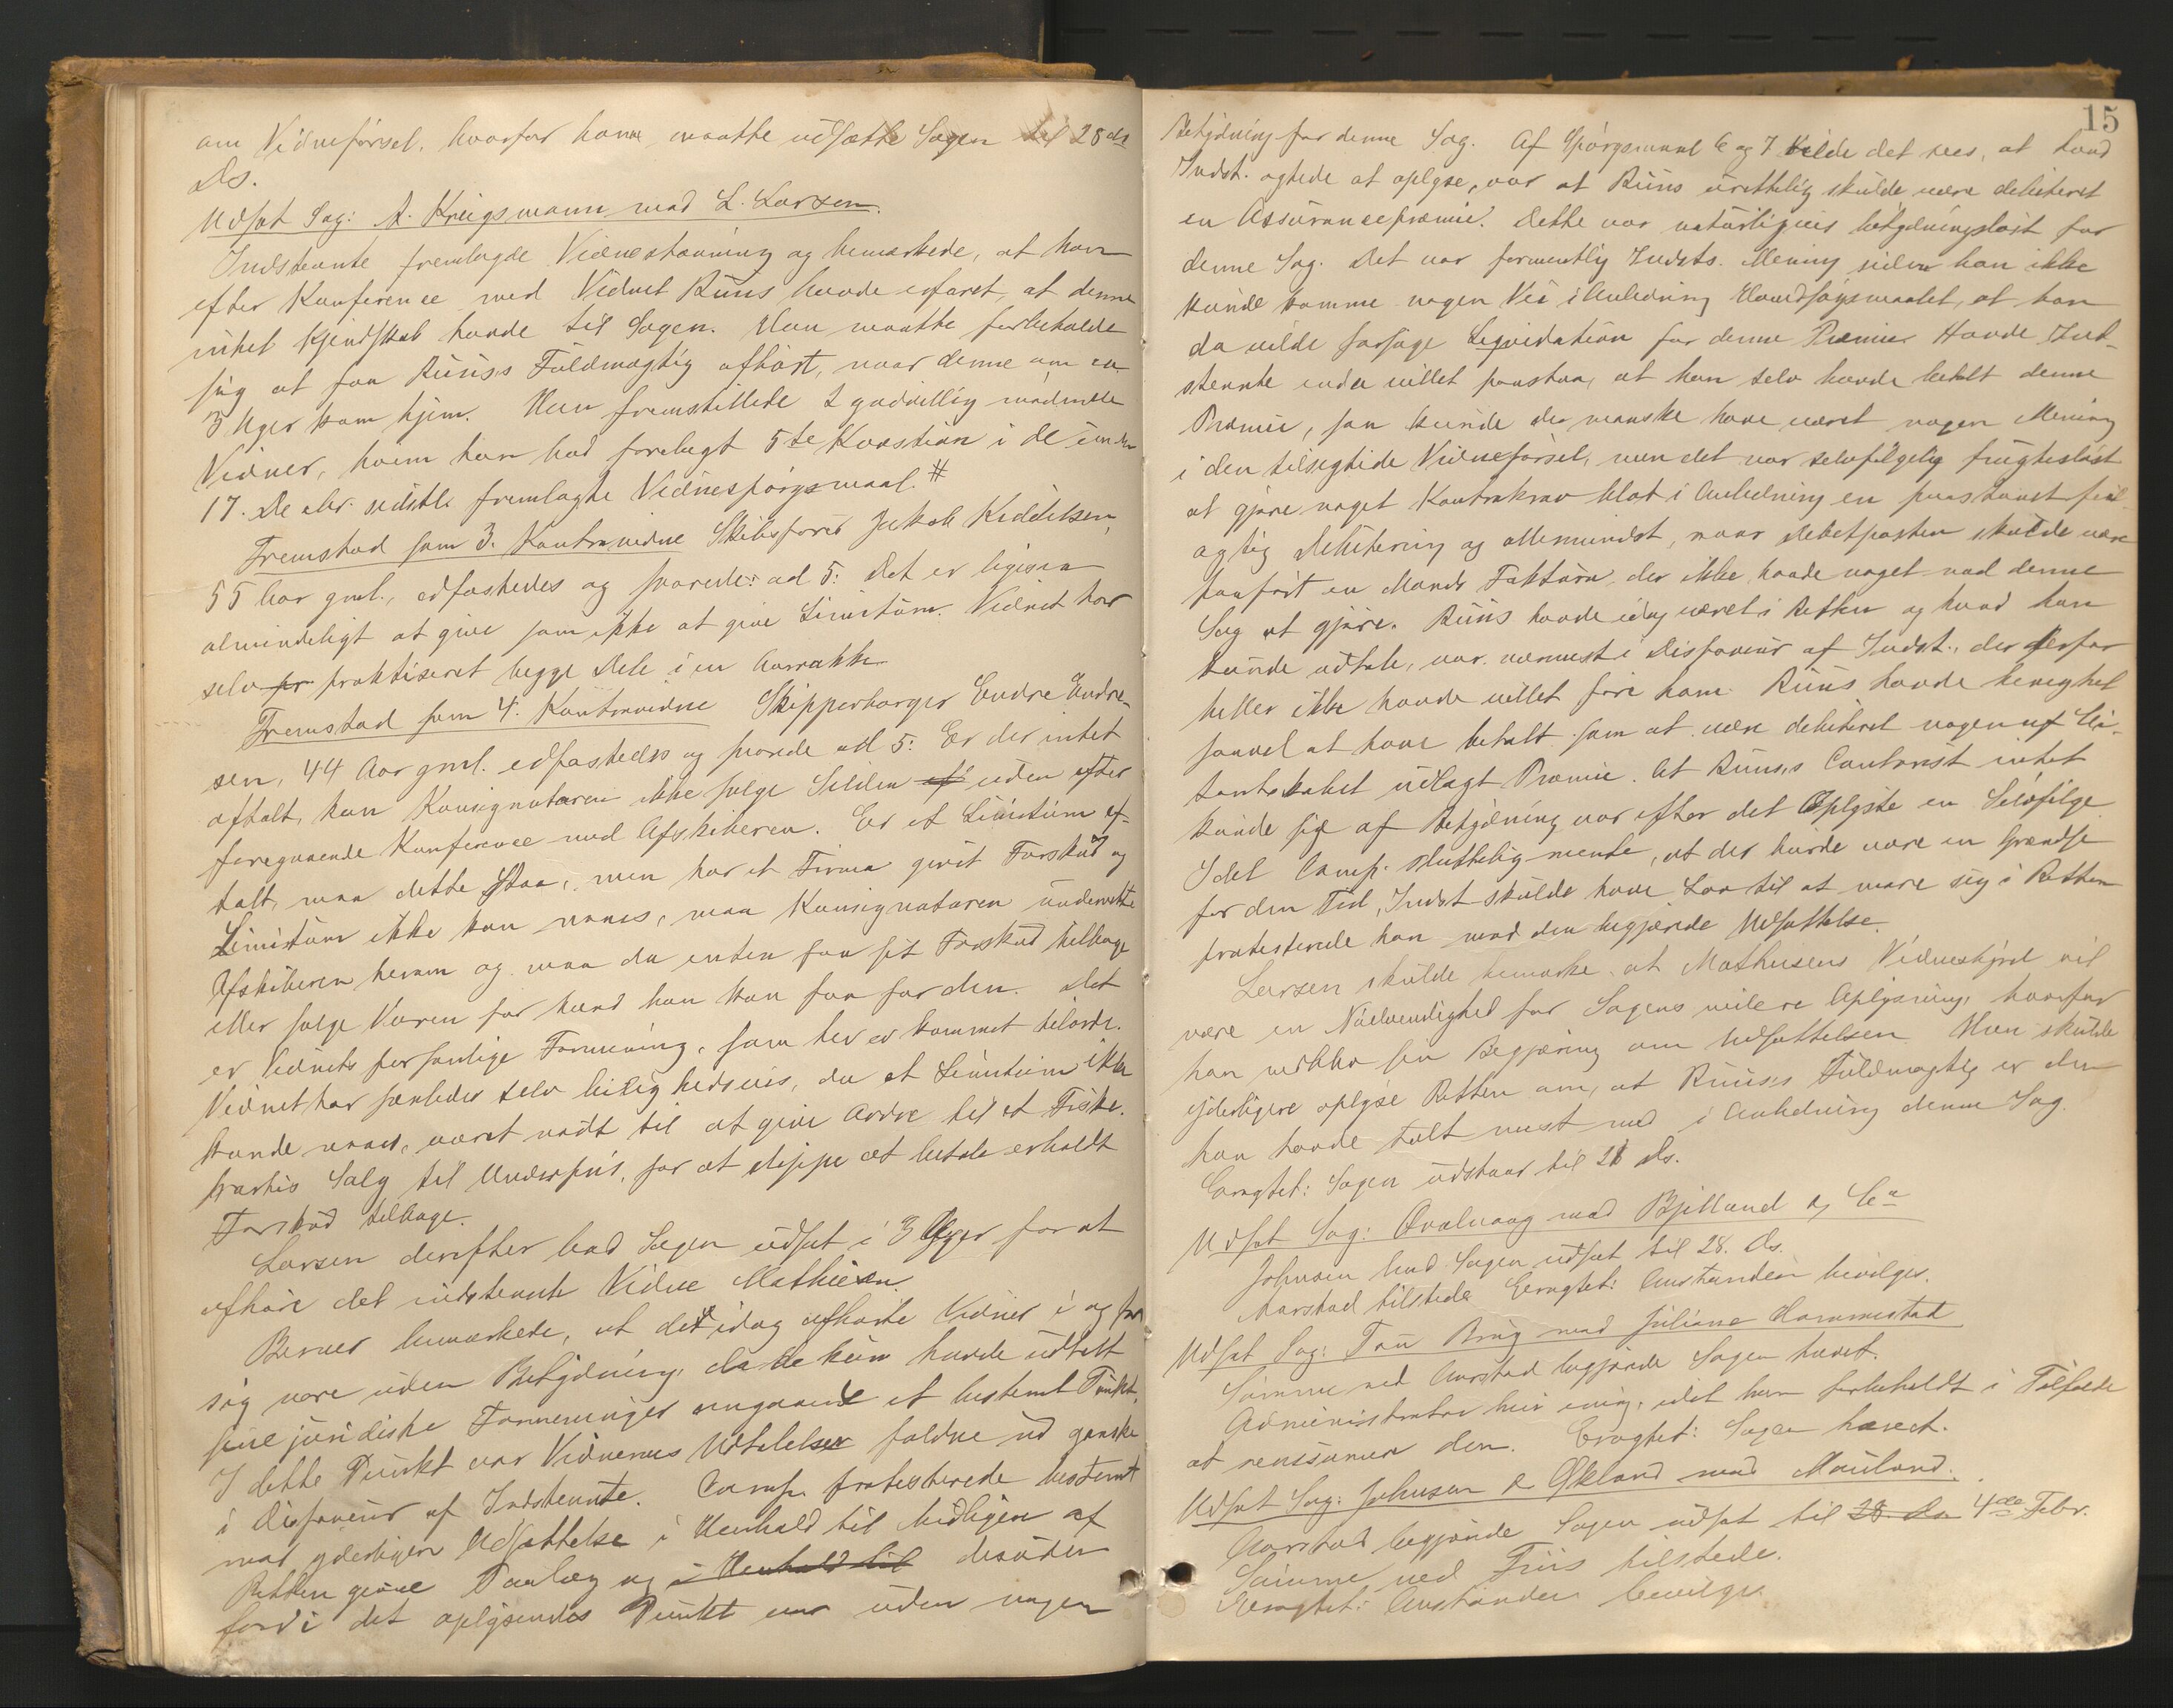 om Vidneførsel, hvorfor han maatte udsætte Sagen til 28de
Ds.
Udsat Sag: A. Kriegsmann mod L. Larsen.
Indstevnte fremlagde Vidnestævning og bemærkede, at han
efter Konference med Vidnet Riis havde erfaret, at denne
intet Kjendskab havde til Sagen. Han maatte forbeholde
sig at faa Riis's Fuldmægtig afhørt, naar denne om ca
3 Uger kom hjem. Han fremstillede 2 godvillig mødende
Vidner, hvem han bad forelagt 5te Kvæstion i de under
17. Decbr. sidstl. fremlagte Vidnespørgsmaal. #
Fremstod som 3. Kontravidne Skibsfører Jakob Kiddelsen,
55 Aar gml., edfæstedes og svarede: ad 5: Det er ligesaa
almindeligt at give som ikke at give Limitum. Vidnet har
selv praktiseret begge Dele i en Aarrække
Fremstod som 4. Kontravidne Skipperborger Endre Endre-
sen, 44 Aar gml. edfæstedes og svarede ad 5: Er der intet
aftalt, kan Konsignatæren ikke sælge Silden af uden efter
foregaaende Konference med Afskiberen. Er et Limitum af-
talt, maa dette staa, men har et Firma givet Forskud og
Limitum ikke kan naaes, maa Konsignatæren underrette
Afskiberen herom og maa da enten faa sit Forskud tilbage
eller sælge Varen for hvad han kan faa for den. Det
er Vidnets personlige Formening, som her er kommet tilorde.
Vidnet har saaledes selv leilighedsvis, da et Limitum ikke
kunde naaes, været nødt til at give Ordre til et Fiske-
partis Salg til Underpris, for at slippe at betale erholdt
Forskud tilbage.
Larsen derefter bad Sagen udsat i 3 Uger for at
afhøre det indstevnte Vidne Mathiesen.
Berner bemærkede, at de idag afhørte Vidner i og for
sig være uden Betydning, da de kun havde udtalt
sine juridiske Formeninger angaaende et bestemt Punkt.
I dette Punkt var Vidnernes Udtalelser faldne ud ganske
i Disfaveur af Indstevnte. Comp. protesterede bestemt
mod yderligere Udsættelse i Henhold til hidtigen af
Retten givne Paalæg og i Henhold til desuden
fordi det oplysendes Punkt var uden nogen
15
Betydning for denne Sag. Af Spørgsmaal 6 og 7 vilde det sees, at hvad
Indst. agtede at oplyse, var at Riis urettelig skulde være debiteret
en Assurancepræmie. Dette var naturligvis betydningsløst for
denne Sag. Det var formentlig Indsts. Mening siden han ikke
kunde komme nogen Vei i Anledning Hovedsøgsmaalet, at han
da vilde forsøge Liqvidation for denne Præmie. Havde Ind-
stevnte endda villet paastaa, at han selv havde betalt denne
Præmie, saa kunde der maaske have været nogen Mening
i den tilsigtede Vidneførsel, men det var selvfølgelig frugtesløst
at gjøre noget Kontrakrav blot i Anledning en paastaaet feil-
agtig Debitering og allermindst, naar Debetposten skulde være
paaført en Mands Faktura, der ikke havde noget med denne
Sag at gjøre. Riis havde idag været i Retten og hvad han
kunde udtale, var nærmest i Disfaveur af Indst., der derfor
heller ikke havde villet føre ham. Riis havde benegtet
saavel at have betalt som at være debiteret nogen af Ci-
tantskabet udlagt Præmie. At Riis's Contorist intet
kunde sige af Betydning var efter det Oplyste en Selvfølge
Idet Comp. sluttelig mente, at der burde være en Grændse
for den Tid, Indst skulde have Lov til at more sig i Retten
protesterede han mod den begjærede Udsættelse.
Larsen skulde bemærke, at Mathiesens Vidnesbyrd vil
være en Nødvendighed for Sagens videre Oplysning, hvorfor
han urokket sin Begjæring om Udsættelsen. Han skulde
yderligere oplyse Retten om, at Riis's Fuldmægtig er den
han havde talt mest med i Anledning denne Sag.
Eragtet: Sagen udstaar til 28 Ds.
Udsat Sag: Qvalvaag mod Bjelland & Co
Johnsen bad Sagen udsat til 28. Ds.
Aarstad tilstede Eragtet: Anstanden bevilges.
Udsat Sag: Tou Brug mod Juliane Hammestad
Samme ved Aarstad begjærede Sagen hævet.
Administrator heri enig, idet han forbeholdt i Tilfælde
at reassumere den. Eragtet: Sagen hævet.
Udsat Sag: Johnsen & Økland mod Mauland.
Aarstad begjærede Sagen udsat til 28. Ds 4de Febr.
Samme ved Friis tilstede.
Eragtet: Anstanden bevilges.